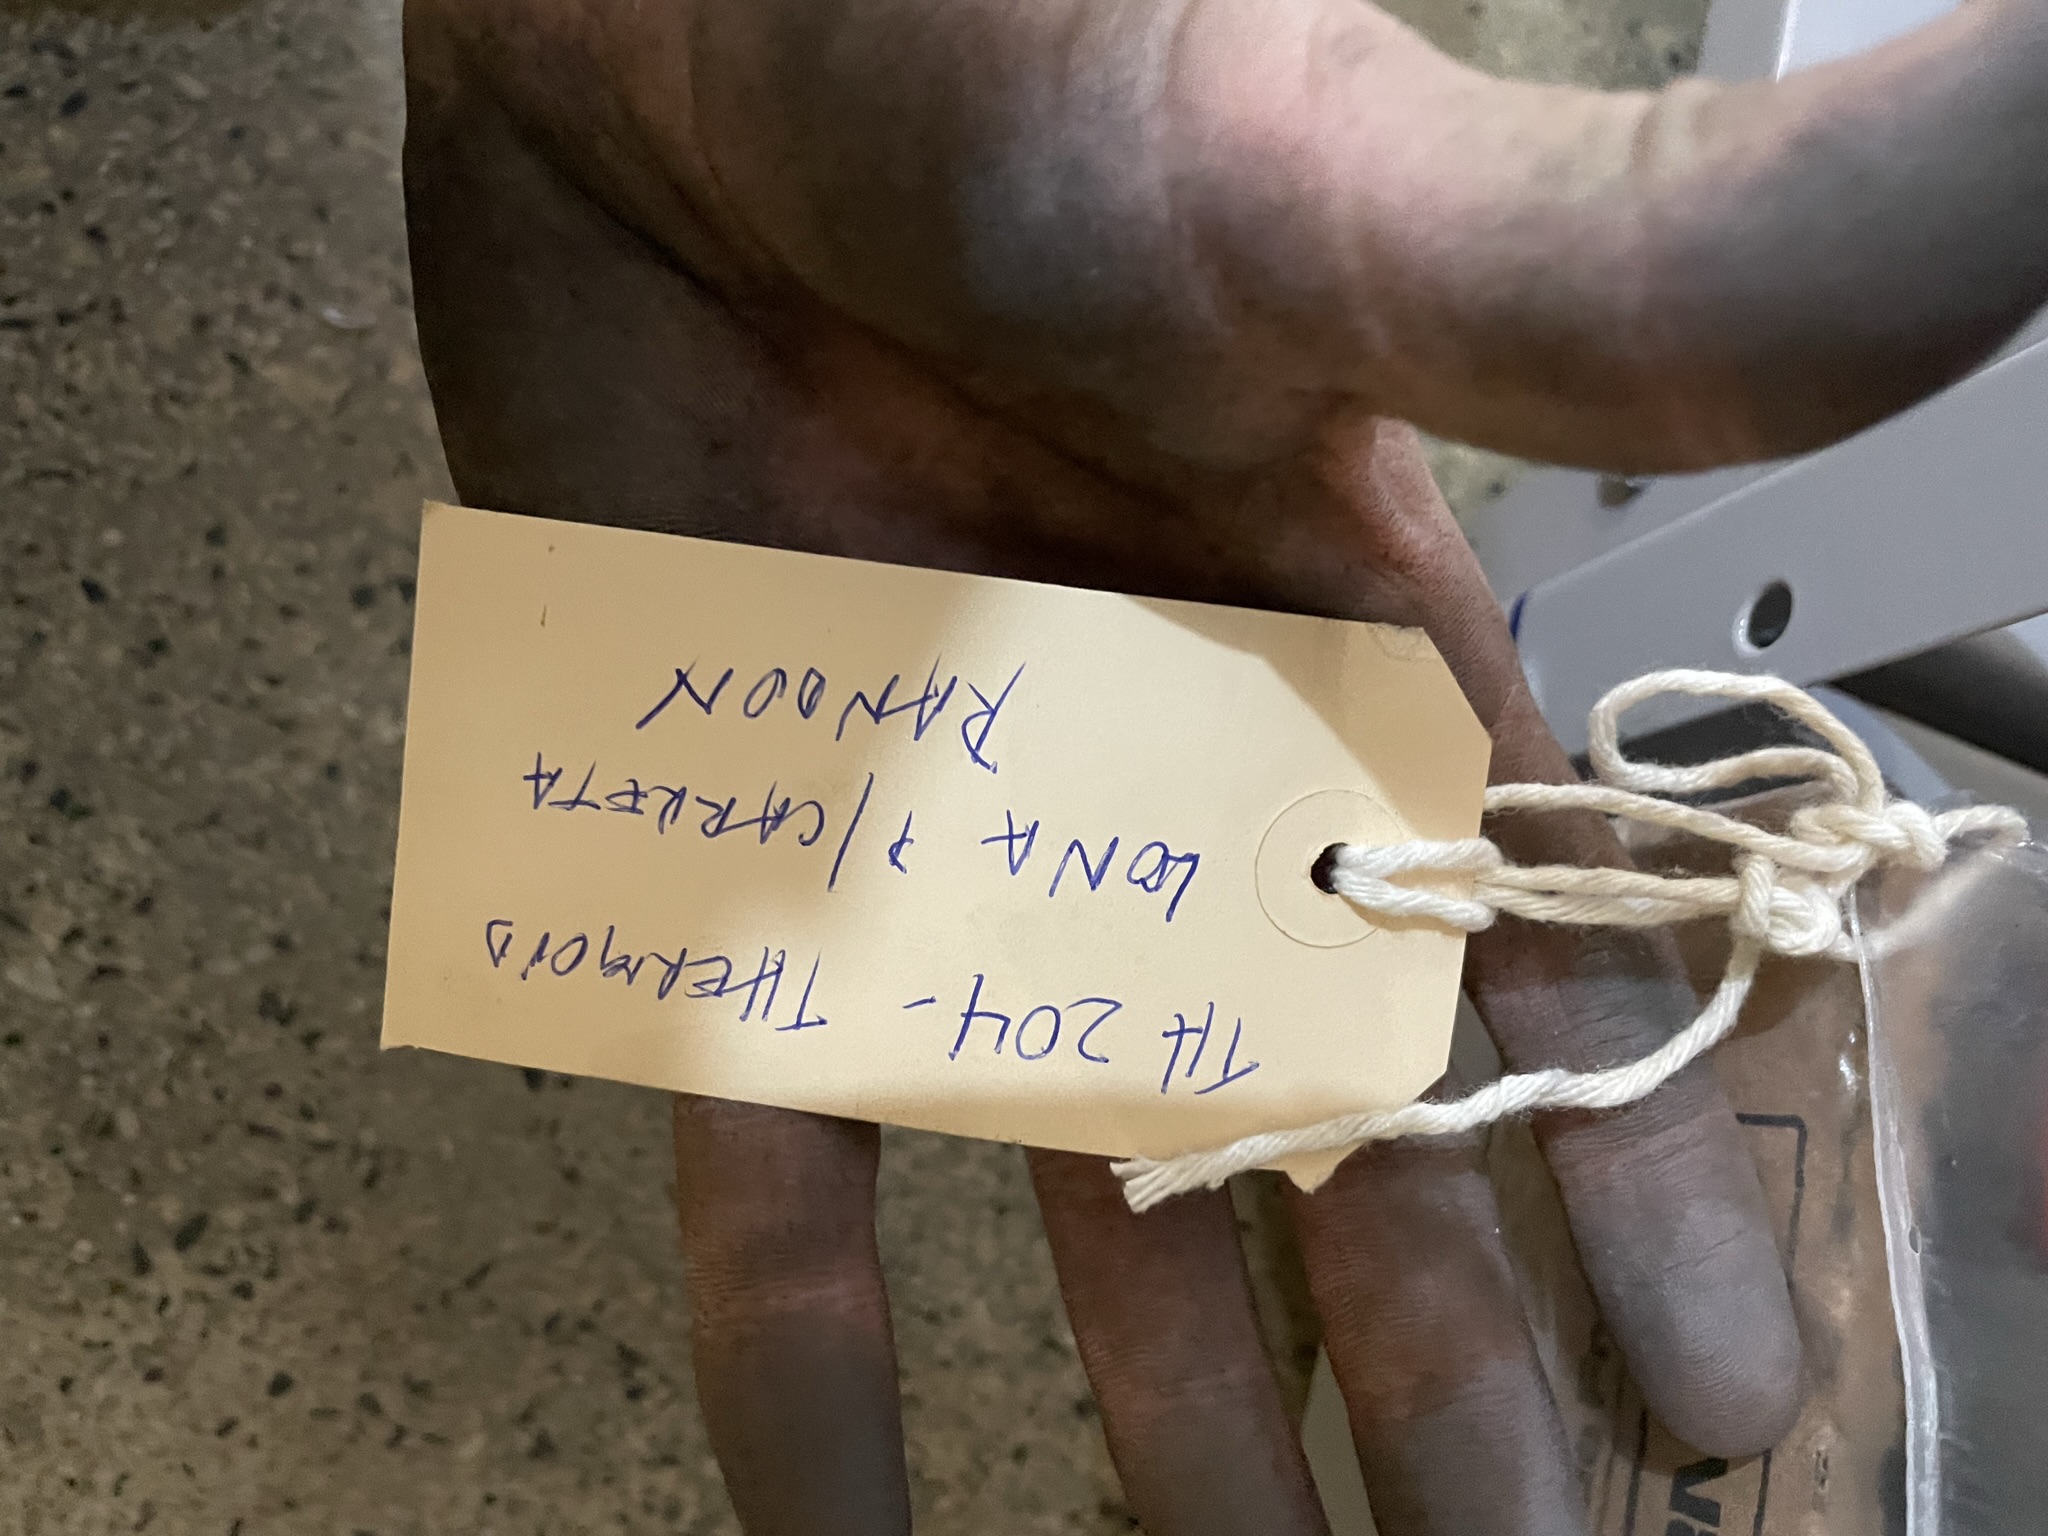 TH 204 - THERMOID
LONA P/ CARRETA
RANDON